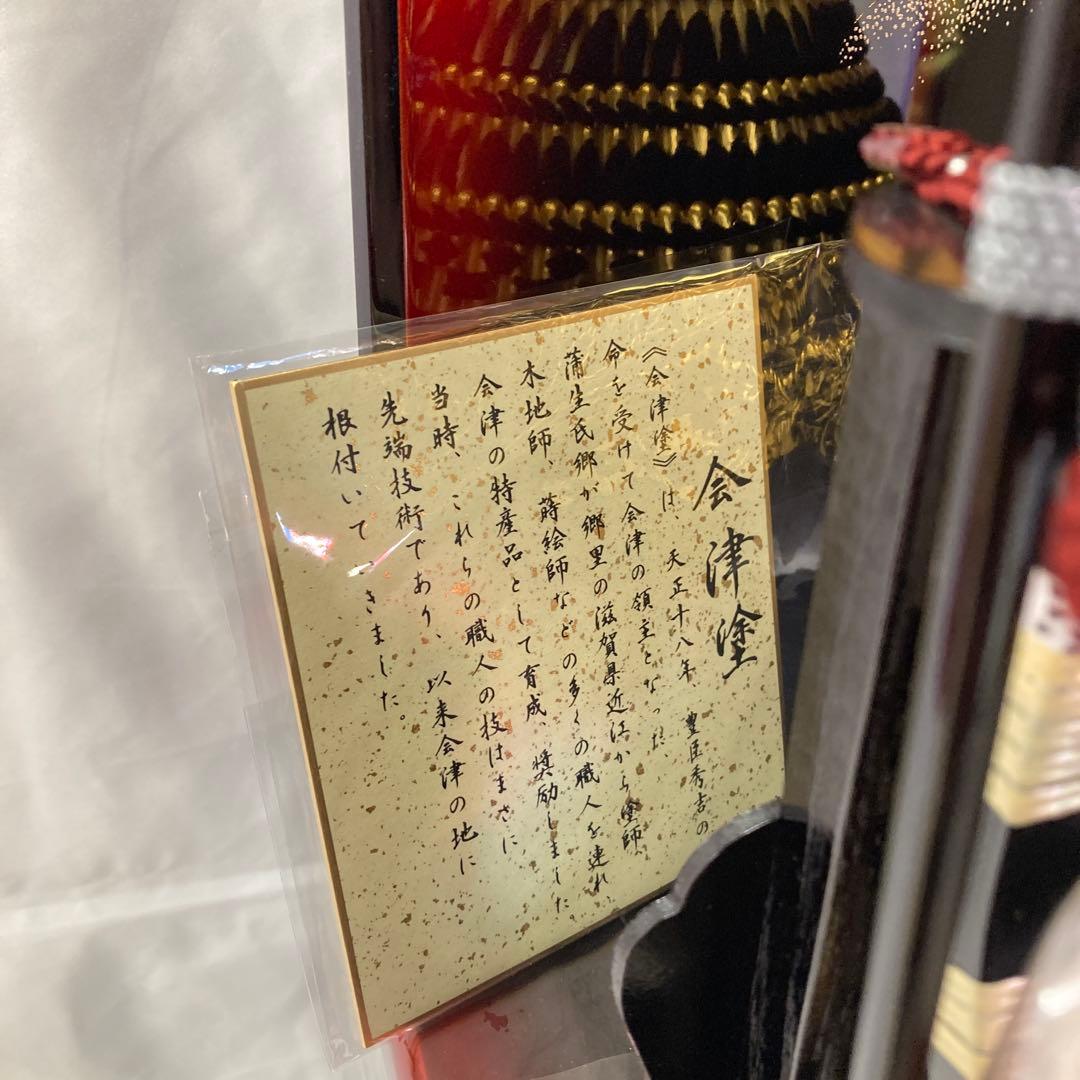 会津塗
《会津塗》は、天正十八年、豊臣秀吉の
命を受けて会津の領主となった
蒲生氏郷が郷里の滋賀県近江から塗師、
木地師、蒔絵師などの多くの職人を連れ
会津の特産品として育成、奨励しました。
当時、これらの職人の技はまさに
先端技術であり、以来会津の地に
根付いていきました。